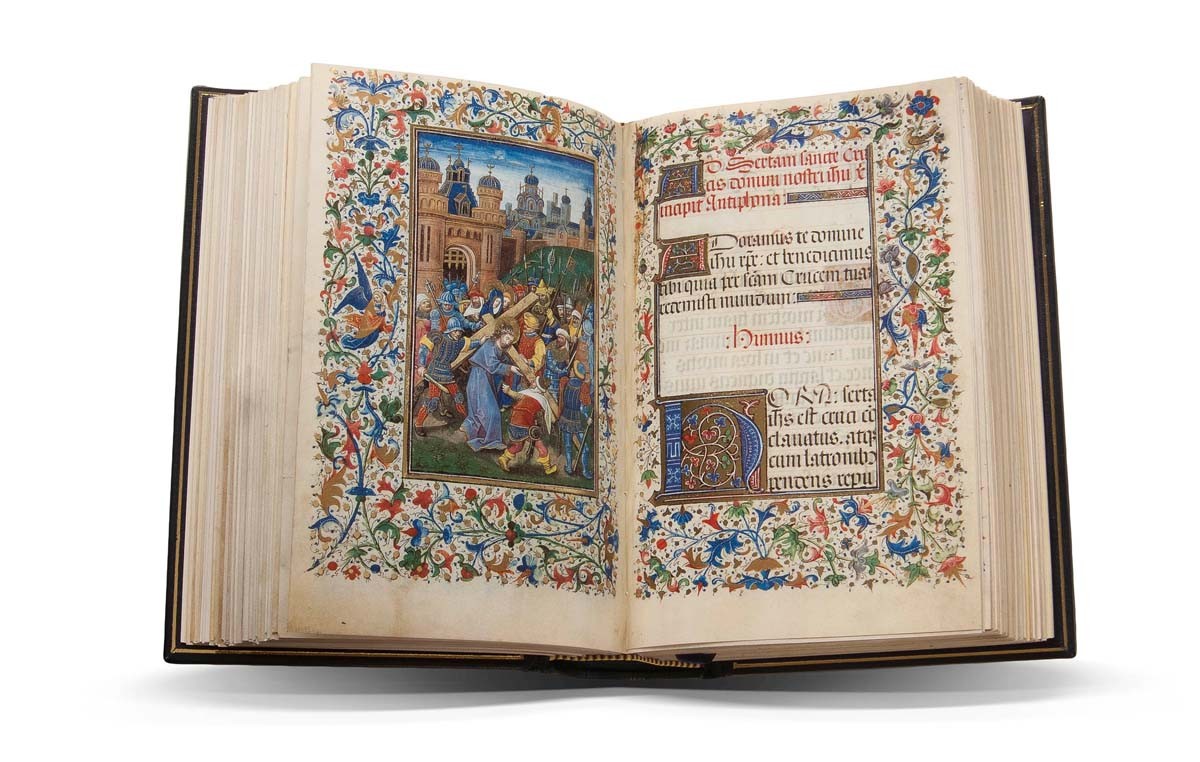 AD Sextam sancte Cru
cis domini nostri ihu x̄
incipit Antiphona:
ADoramus te domine
ihu xp̄e: et benedicimus
tibi quia per scām Crucem tuā
redemisti mundum:
: Himnus:
HORA: sexta
ihs est cruci cō
clauatus. atqꝫ
cum latronibꝫ
pendens repu